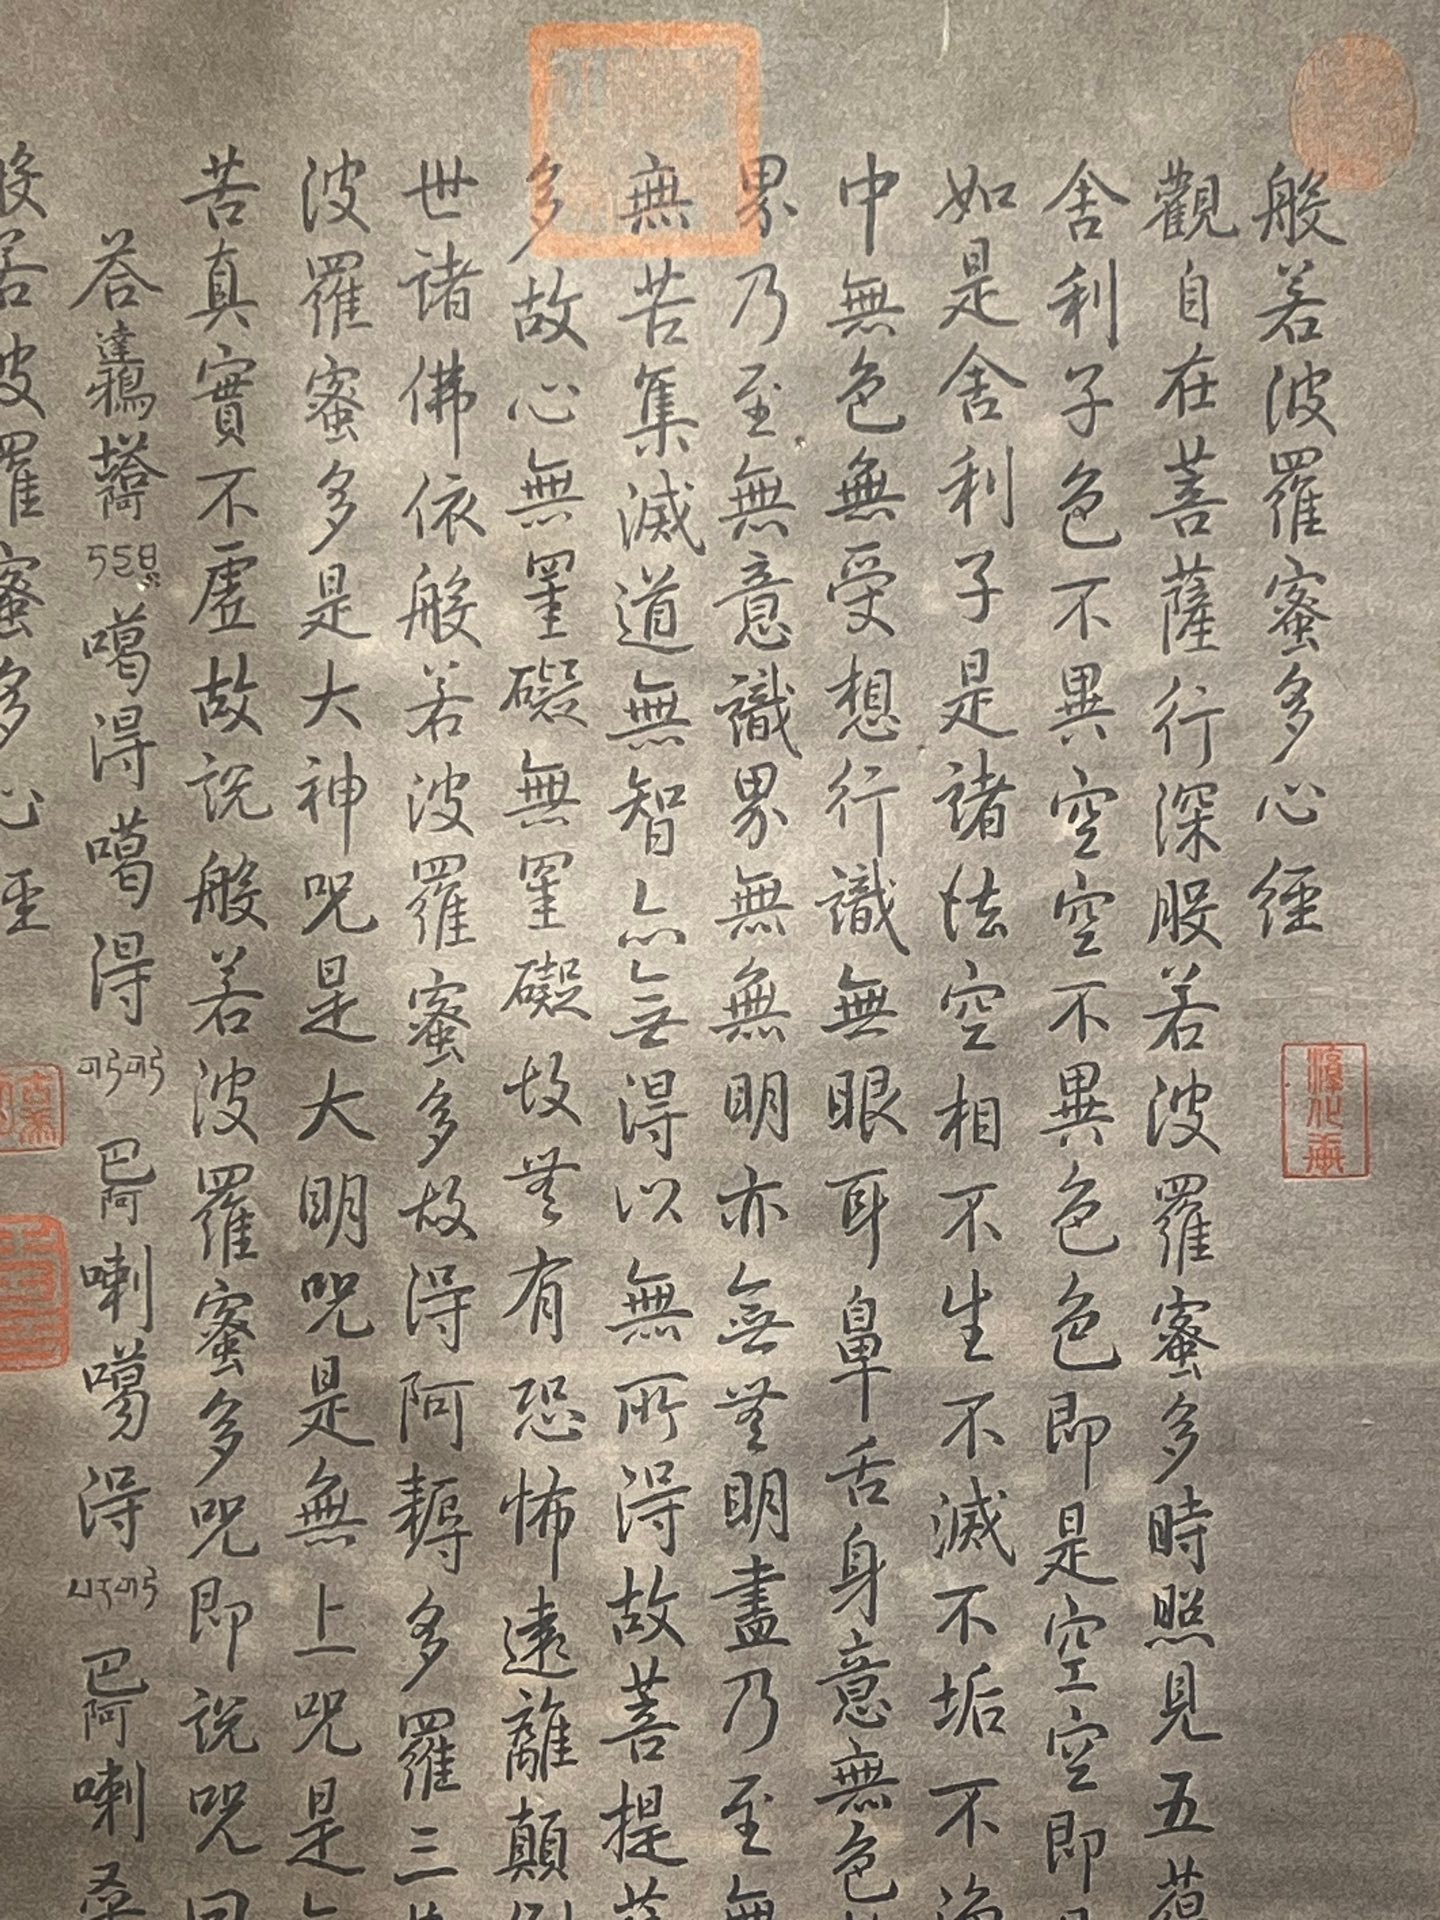 般若波羅蜜多心經
觀自在菩薩行深般若波羅蜜多時照見五蘊
舍利子色不異空空不異色色即是空空即是
如是舍利子是諸法空相不生不滅不垢不淨
中無色無受想行識無眼耳鼻舌身意無色
界乃至無意識界無無明亦無無明盡乃至無
無苦集滅道無智亦無得以無所得故菩提薩
多故心無罣礙無罣礙故無有恐怖遠離顛倒
世諸佛依般若波羅蜜多故得阿耨多羅三
波羅蜜多是大神呪是大明呪是無上呪是
苦真實不虛故說般若波羅蜜多呪即說呪曰
答達鴉塔阿 噶得噶得 巴阿喇噶得 巴阿喇
般若波羅蜜多心經
淳化軒